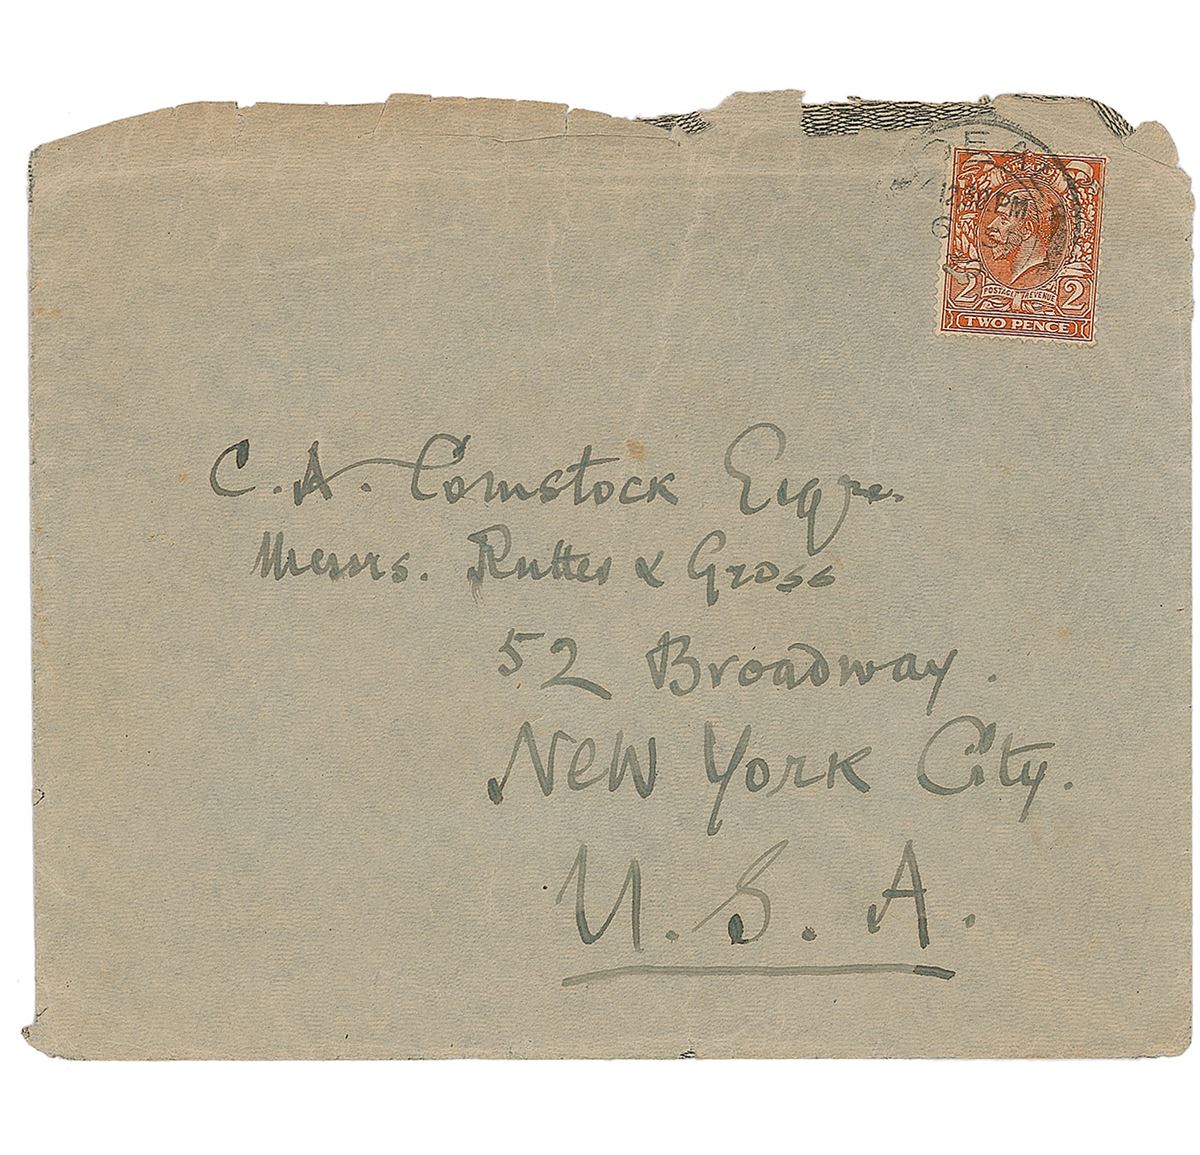 12.50 PM
6
POSTAGE REVENUE
2 2
TWO PENCE
C. A. Comstock Esqre.
Messrs. Rutter & Gross
52 Broadway.
New York City.
U. S. A.